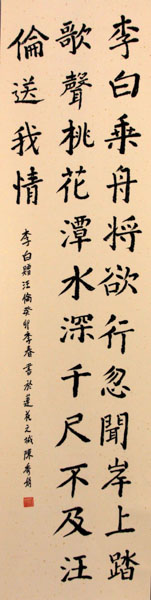 李白乘舟將欲行忽聞岸上踏
歌聲桃花潭水深千尺不及汪
倫送我情
李白贈汪倫癸巳季春書於蓮花之城陳秀